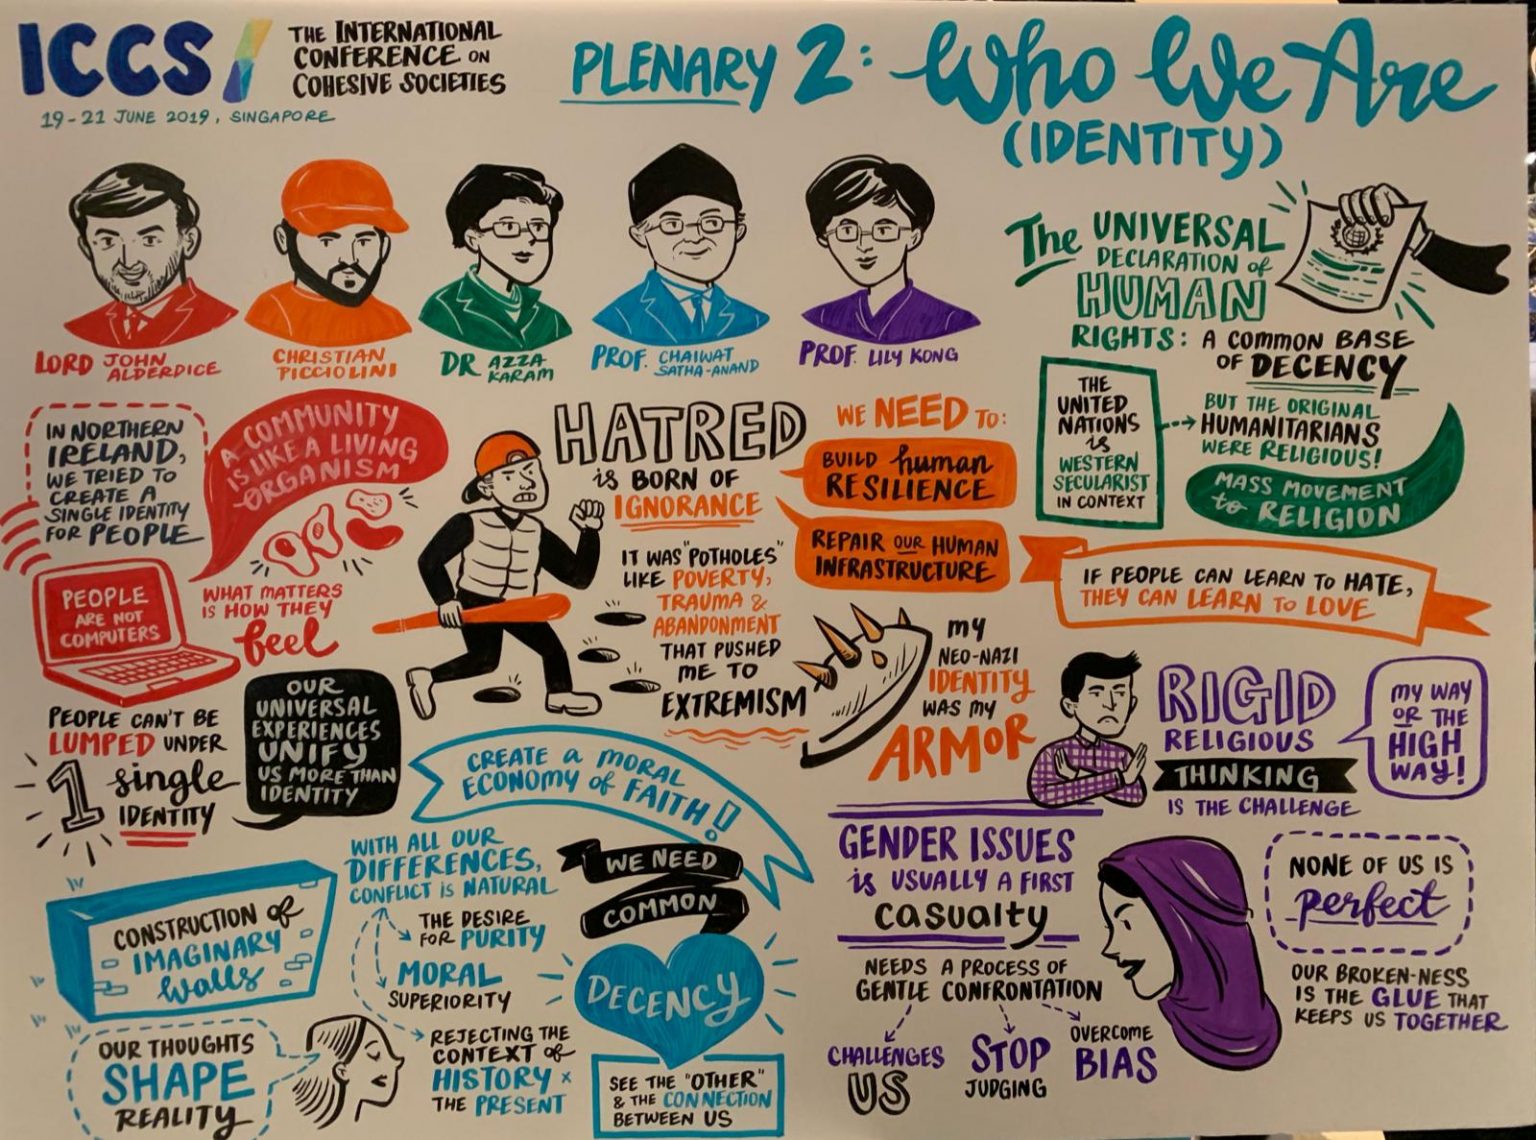 ICCS/
THE INTERNATIONAL
CONFERENCE ON
COHESIVE SOCIETIES
19-21 JUNE 2019, SINGAPORE
PLENARY 2: Who We Are
(IDENTITY)
LORD JOHN
ALDERDICE
CHRISTIAN
PICCIOLINI
DR AZZA
KARAM
PROF. CHAIWAT
SATHA-ANAND
PROF. LILY KONG
The UNIVERSAL
DECLARATION of
HUMAN
RIGHTS: A COMMON BASE
OF DECENCY
THE
UNITED
NATIONS
is
WESTERN
SECULARIST
IN CONTEXT
BUT THE ORIGINAL
HUMANITARIANS
WERE RELIGIOUS!
MASS MOVEMENT
to RELIGION
IN NORTHERN
IRELAND,
WE TRIED TO
CREATE A
SINGLE IDENTITY
FOR PEOPLE
A COMMUNITY
IS LIKE A LIVING
ORGANISM
PEOPLE
ARE NOT
COMPUTERS
WHAT MATTERS
IS HOW THEY
feel
PEOPLE CAN'T BE
LUMPED UNDER
1 single
IDENTITY
OUR
UNIVERSAL
EXPERIENCES
UNIFY
US MORE THAN
IDENTITY
HATRED
is BORN OF
IGNORANCE
IT WAS "POTHOLES"
LIKE POVERTY,
TRAUMA &
ABANDONMENT
THAT PUSHED
ME TO
EXTREMISM
WE NEED TO:
BUILD human
RESILIENCE
REPAIR OUR HUMAN
INFRASTRUCTURE
MY
NEO-NAZI
IDENTITY
WAS MY
ARMOR
IF PEOPLE CAN LEARN TO HATE,
THEY CAN LEARN to LOVE
RIGID
RELIGIOUS
THINKING
IS THE CHALLENGE
MY WAY
OR THE
HIGH
WAY!
CREATE a MORAL
ECONOMY of FAITH!
WITH ALL OUR
DIFFERENCES,
CONFLICT is NATURAL
THE DESIRE
FOR PURITY
MORAL
SUPERIORITY
REJECTING THE
CONTEXT of
HISTORY x
THE PRESENT
CONSTRUCTION of
IMAGINARY
Walls
OUR THOUGHTS
SHAPE
REALITY
WE NEED
COMMON
DECENCY
SEE THE "OTHER"
& THE CONNECTION
BETWEEN US
GENDER ISSUES
is USUALLY A FIRST
casualty
NEEDS A PROCESS OF
GENTLE CONFRONTATION
CHALLENGES
US
STOP
JUDGING
OVERCOME
BIAS
NONE OF US IS
perfect
OUR BROKEN-NESS
IS THE GLUE THAT
KEEPS US TOGETHER